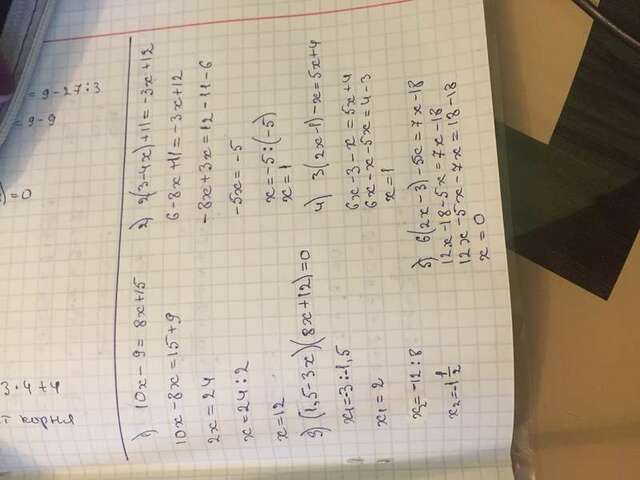 = 9 - 27 : 3
= 9 - 9
= 0
3 · 4 + 4
т корня
1) 10x - 9 = 8x + 15
10x - 8x = 15 + 9
2x = 24
x = 24 : 2
x = 12
2) 2(3 - 4x) + 11 = -3x + 12
6 - 8x + 11 = -3x + 12
-8x + 3x = 12 - 11 - 6
-5x = -5
x = -5 : (-5)
x = 1
3) (1,5 - 3x)(8x + 12) = 0
x₁ = -3 : -1,5
x₁ = 2
x₂ = -12 : 8
x₂ = -1 1/2
4) 3(2x - 1) - x = 5x + 4
6x - 3 - x = 5x + 4
6x - x - 5x = 4 - 3
x = 1
5) 6(2x - 3) - 5x = 7x - 18
12x - 18 - 5x = 7x - 18
12x - 5x - 7x = 18 - 18
x = 0